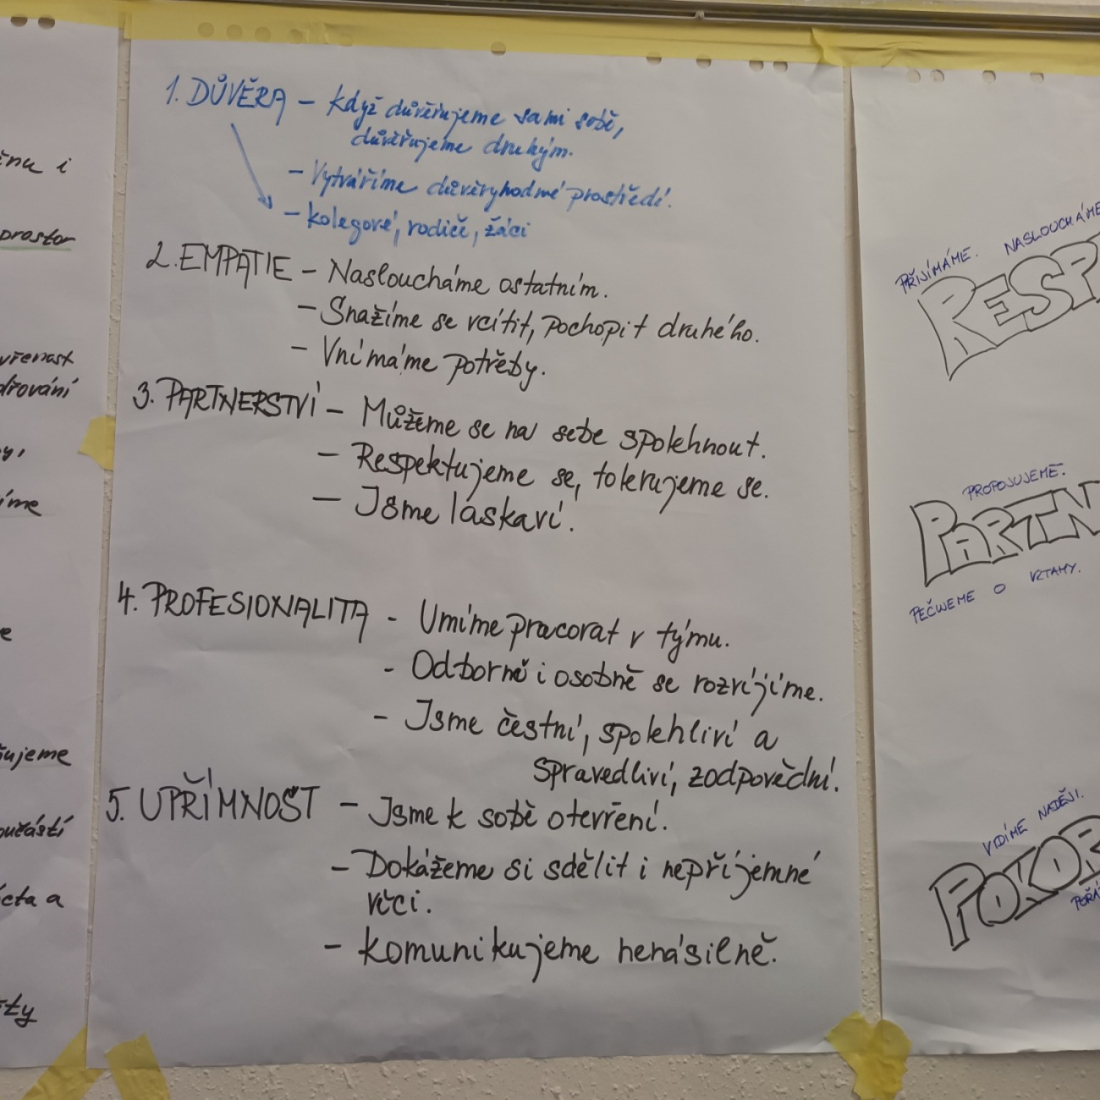 1. DŮVĚRA – Když důvěřujeme sami sobě,
důvěřujeme druhým.
– Vytváříme důvěryhodné prostředí.
– kolegové, rodiče, žáci
2. EMPATIE – Nasloucháme ostatním.
– Snažíme se vcítit, pochopit druhého.
– Vnímáme potřeby.
3. PARTNERSTVÍ – Můžeme se na sebe spolehnout.
– Respektujeme se, tolerujeme se.
– Jsme laskaví.
4. PROFESIONALITA - Umíme pracovat v týmu.
- Odborně i osobně se rozvíjíme.
- Jsme čestní, spolehliví a
spravedliví, zodpovědní.
5. UPŘÍMNOST – Jsme k sobě otevření.
– Dokážeme si sdělit i nepříjemné
věci.
– Komunikujeme nenásilně.
i
prostor
íme
e
ujeme
cta a
PŘIJÍMÁME. NASLOUCHÁME
RESP
PROPOJUJEME.
PARTN
PEČUJEME O VZTAHY.
VIDÍME NADĚJI.
POKOR